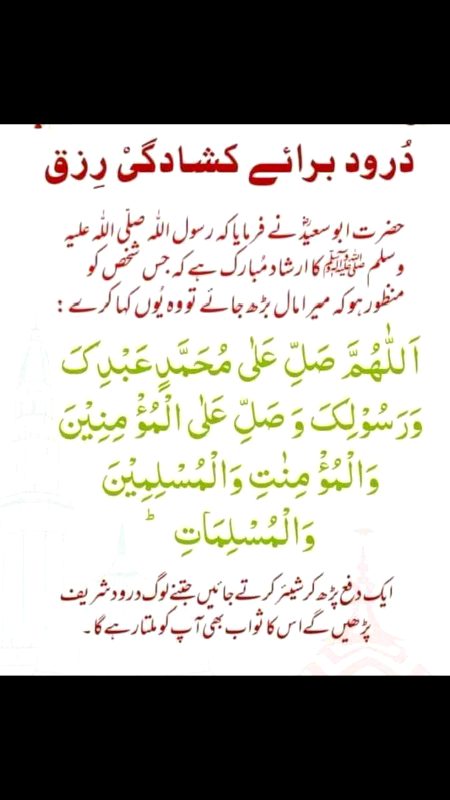 دُرود برائے کشادگیٔ رِزق
حضرت ابو سعیدؓ نے فرمایا کہ رسول اللہ صلّی اللہ علیہ
وسلم ﷺ کا ارشاد مُبارک ہے کہ جس شخص کو
منظور ہو کہ میرا مال بڑھ جائے تو وہ یُوں کہا کرے :
اَللّٰهُمَّ صَلِّ عَلٰی مُحَمَّدٍ عَبْدِکَ
وَرَسُوْلِکَ وَ صَلِّ عَلٰی الْمُؤْ مِنِیْنَ
وَالْمُؤْ مِنٰتِ وَالْمُسْلِمِیْنَ
وَالْمُسْلِمَاتِ ؕ
ایک دفع پڑھ کر شیئر کرتے جائیں جتنے لوگ درود شریف
پڑھیں گے اس کا ثواب بھی آپ کو ملتا رہے گا ۔